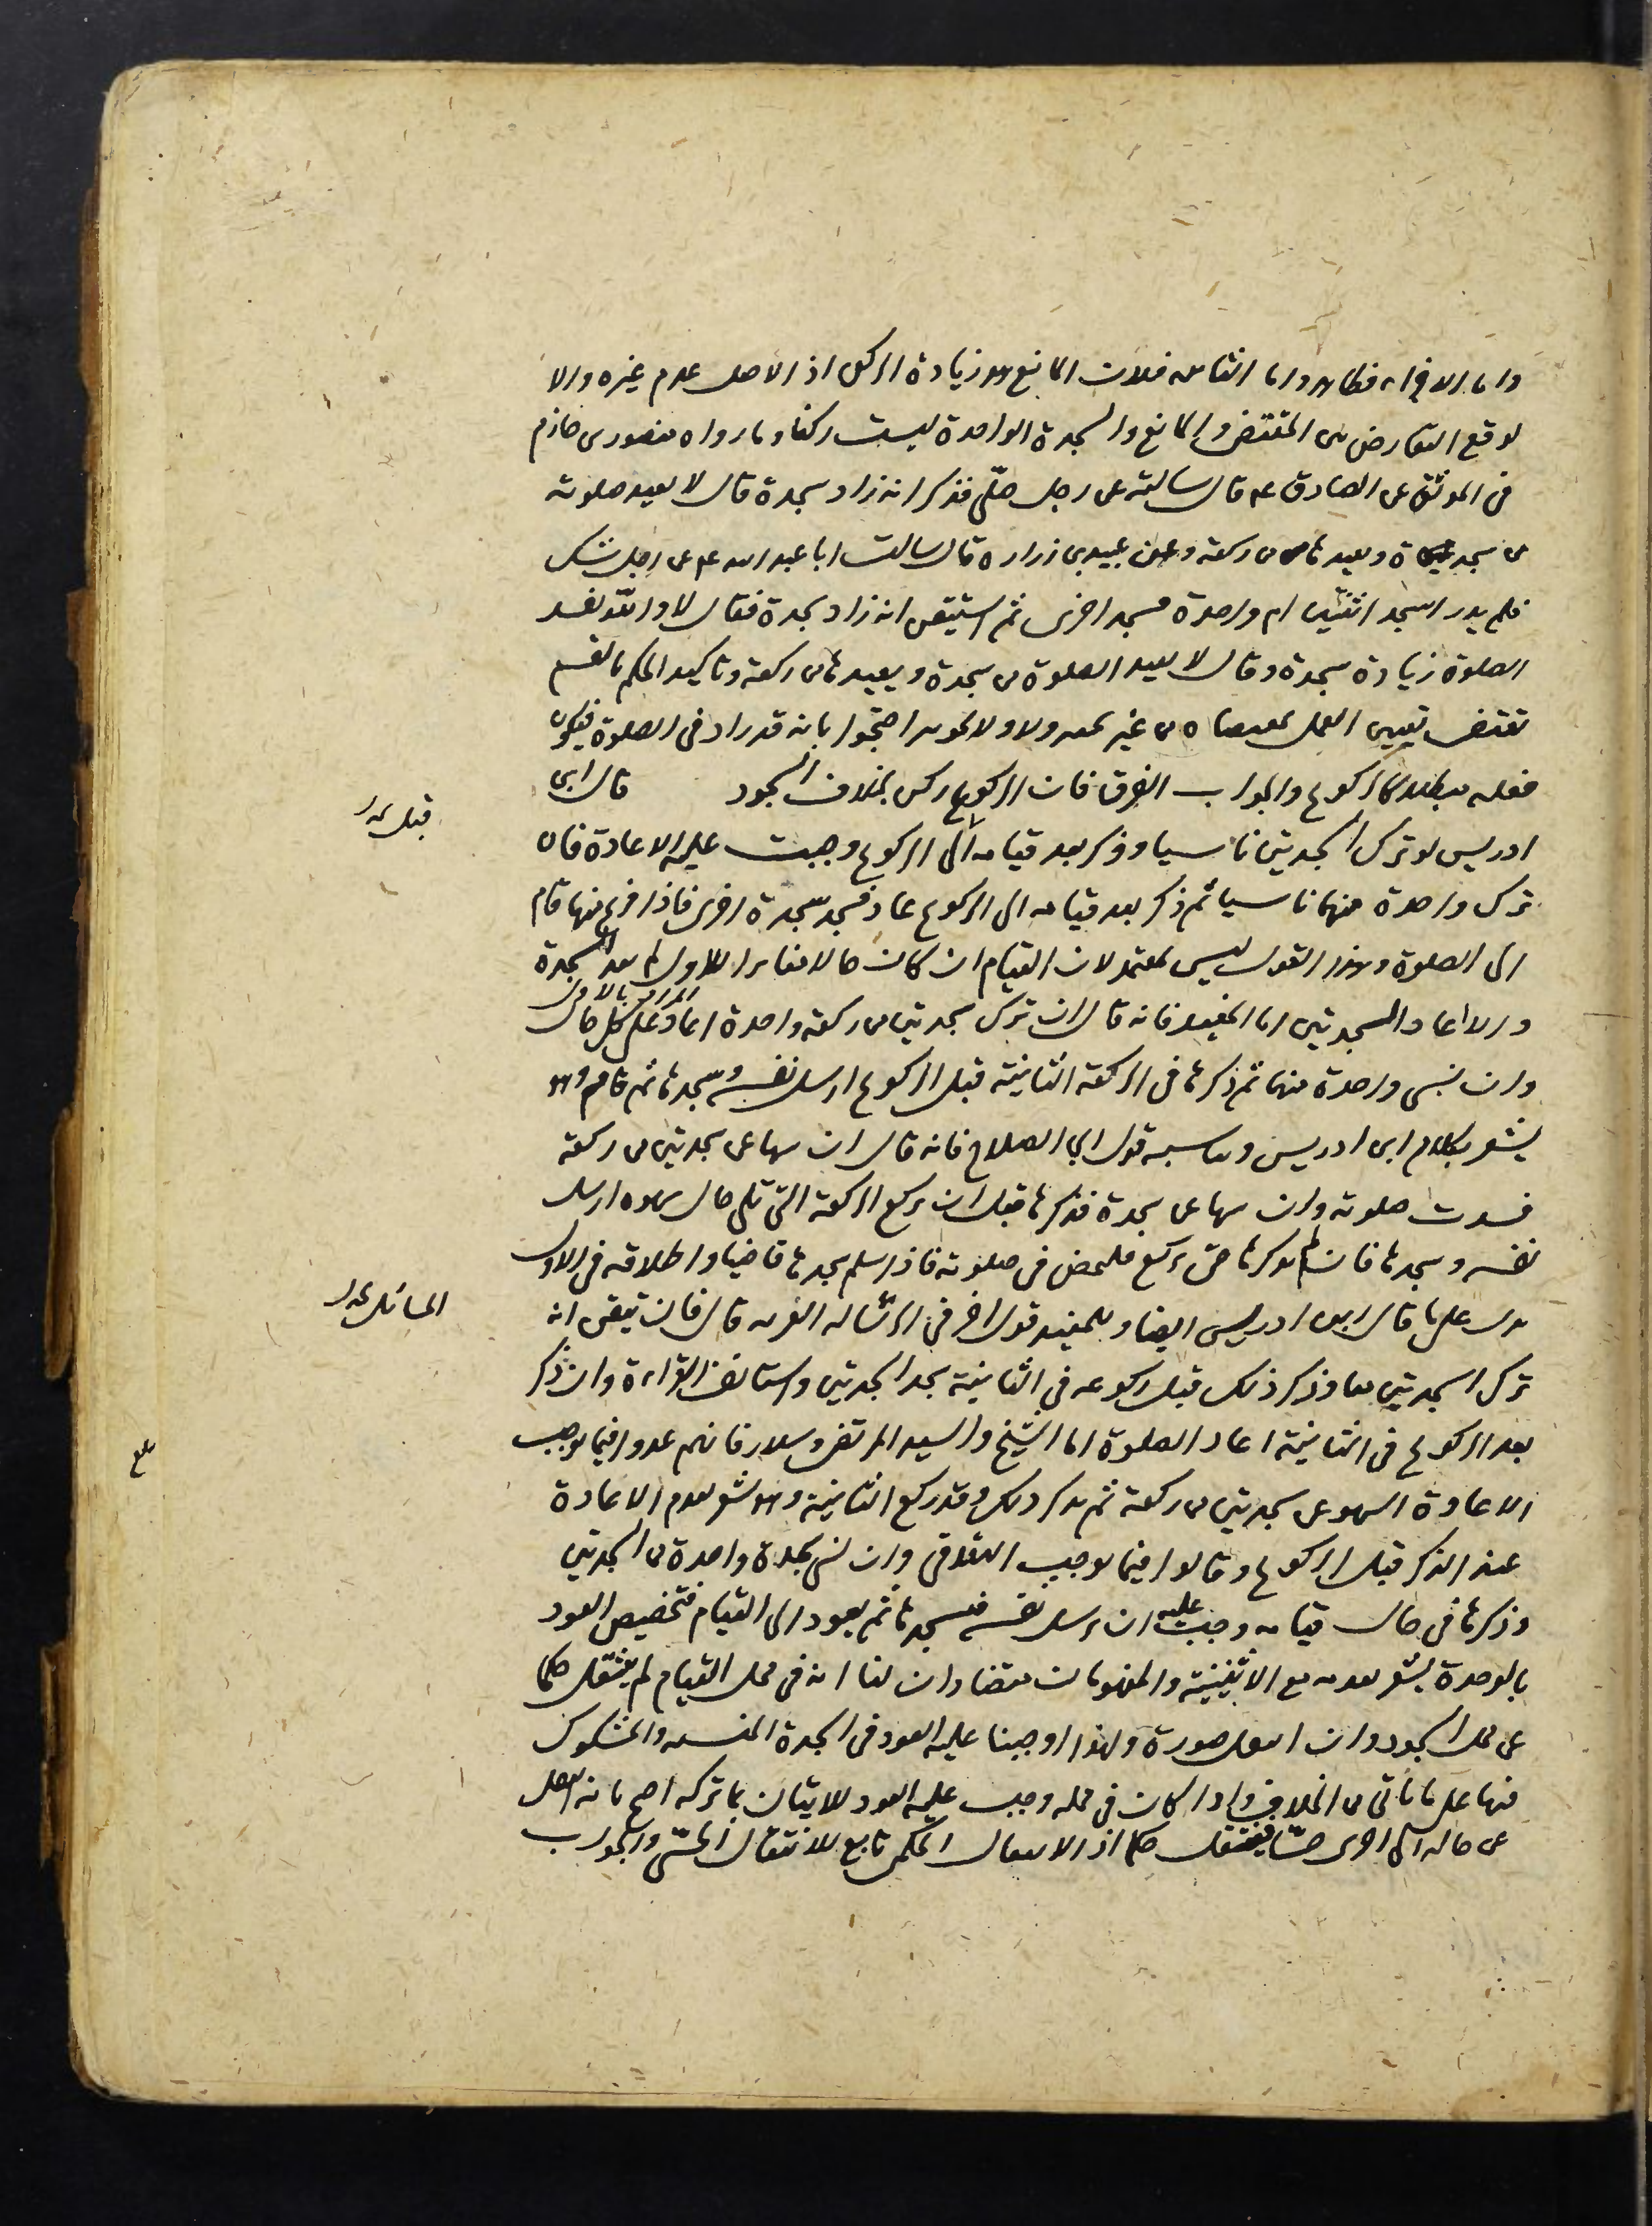 واما الاجزاء فظاهر واما الثانية فلان المانع هو زيادة الركن اذ الاصل عدم غيره والا
لوقع التعارض بين المقتضي والمانع والسجدة الواحدة ليست ركنا وما رواه منصور بن حازم
في الموثق عن الصادق ع قال سالته عن رجل صلى فذكر انه زاد سجدة قال لا يعيد صلوته
من سجدة ويعيدها من ركعة وعن عبيد بن زرارة قال سالت ابا عبد الله ع عن رجل شك
فلم يدر اسجد اثنتين ام واحدة فسجد اخرى ثم استيقن انه زاد سجدة فقال لا والله لا تفسد
الصلوة زيادة سجدة وقال لا يعيد الصلوة من سجدة ويعيدها من ركعة وتاكيد الحكم بالقسم
تقتضي تعيين العمل بمقتضاه من غير احتجوا بانه قد زاد في الصلوة فيكون
فعله مبطلا كالركوع والجواب الفرق فان الركوع ركن بخلاف السجود قال ابن
ادريس لو ترك السجدتين ناسيا وذكر بعد قيامه الى الركوع وجبت عليه الاعادة فان
ترك واحدة منهما ناسيا ثم ذكر بعد قيامه الى الركوع عاد فسجد سجدة اخرى فاذا فرغ منها قام
الى الصلوة وهذا القول ليس بمعتمد لان القيام ان كان حالا مغايرا للاول لم يعد السجدة
المراد بالاول
والا اعاد السجدتين اما المفيد فانه قال ان ترك سجدتين من ركعة واحدة اعاد على كل حال
وان نسي واحدة منهما ثم ذكرها في الركعة الثانية قبل الركوع ارسل نفسه وسجدها ثم قام وهو
يشعر بكلام ابن ادريس ويناسبه قول ابي الصلاح فانه قال ان سها عن سجدتين من ركعة
فسدت صلوته وان سها عن سجدة فذكرها قبل ان يركع الركعة التي تلي حال سهوه ارسل
نفسه وسجدها فان لم يذكرها حتى يركع فليمض في صلوته فاذا سلم سجدها قاضيا واطلاقه في الاول
يدل على ما قال ابن ادريس ايضا وللمفيد قول اخر في الرسالة الغرية قال فان تيقن انه
ترك السجدتين معا وذكر ذلك قبل ركوعه في الثانية سجد السجدتين واستانف القراءة وان ذكر
بعد الركوع في الثانية اعاد الصلوة اما الشيخ والسيد المرتضى وسلار فانهم عدوا فيما يوجب
الاعادة السهو عن سجدتين من ركعة ثم يذكر ذلك وقد ركع الثانية وهو يشعر بعدم الاعادة
عند الذكر قبل الركوع وقالوا فيما يوجب التلافي وان نسي سجدة واحدة من السجدتين
وذكرها في حال قيامه وجب عليه ان يرسل نفسه فيسجدها ثم يعود الى القيام فتخصيص العود
بالوحدة يشعر بعدمه مع الاثنينية والمفهومان متضادان لنا انه في محل القيام لم ينتقل حكما
عن محل السجود وان انتقل صورة ولهذا اوجبنا عليه العود في السجدة المنسية والمشكوك
فيها على ما ياتي من الخلاف واذا كان في محله وجب عليه العود للاتيان بما تركه احتج بانه انتقل
عن حالة الى اخرى حسا فينتقل حكما اذ الانتقال الحكمي تابع للانتقال الحسي والجواب